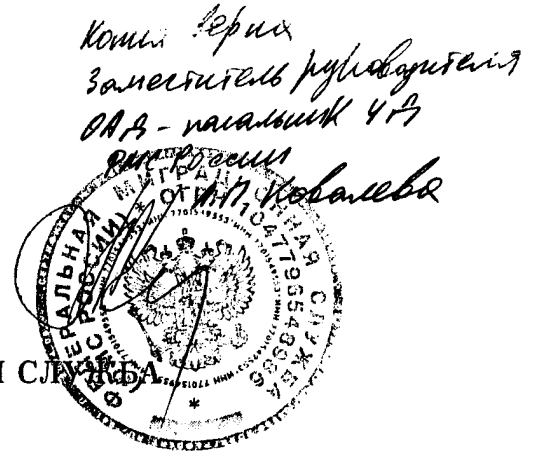 Копия верна
Заместитель руководителя
ОАД - начальник УД
ФМС России
Ковалева
ФЕДЕРАЛЬНАЯ МИГРАЦИОННАЯ СЛУЖБА
(ФМС РОССИИ) * ОГРН 1047796548986
*
СЛУЖБА